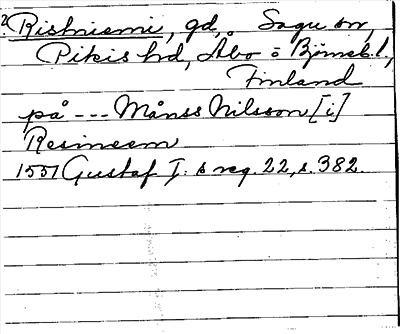 2 Ristniemi, gd, Sagu sn,
Pikis hd, Åbo o Björneb. l.,
Finland
på --- Månss Nilsson [i]
Resineem
1551 Gustaf I:s reg. 22, s. 382.